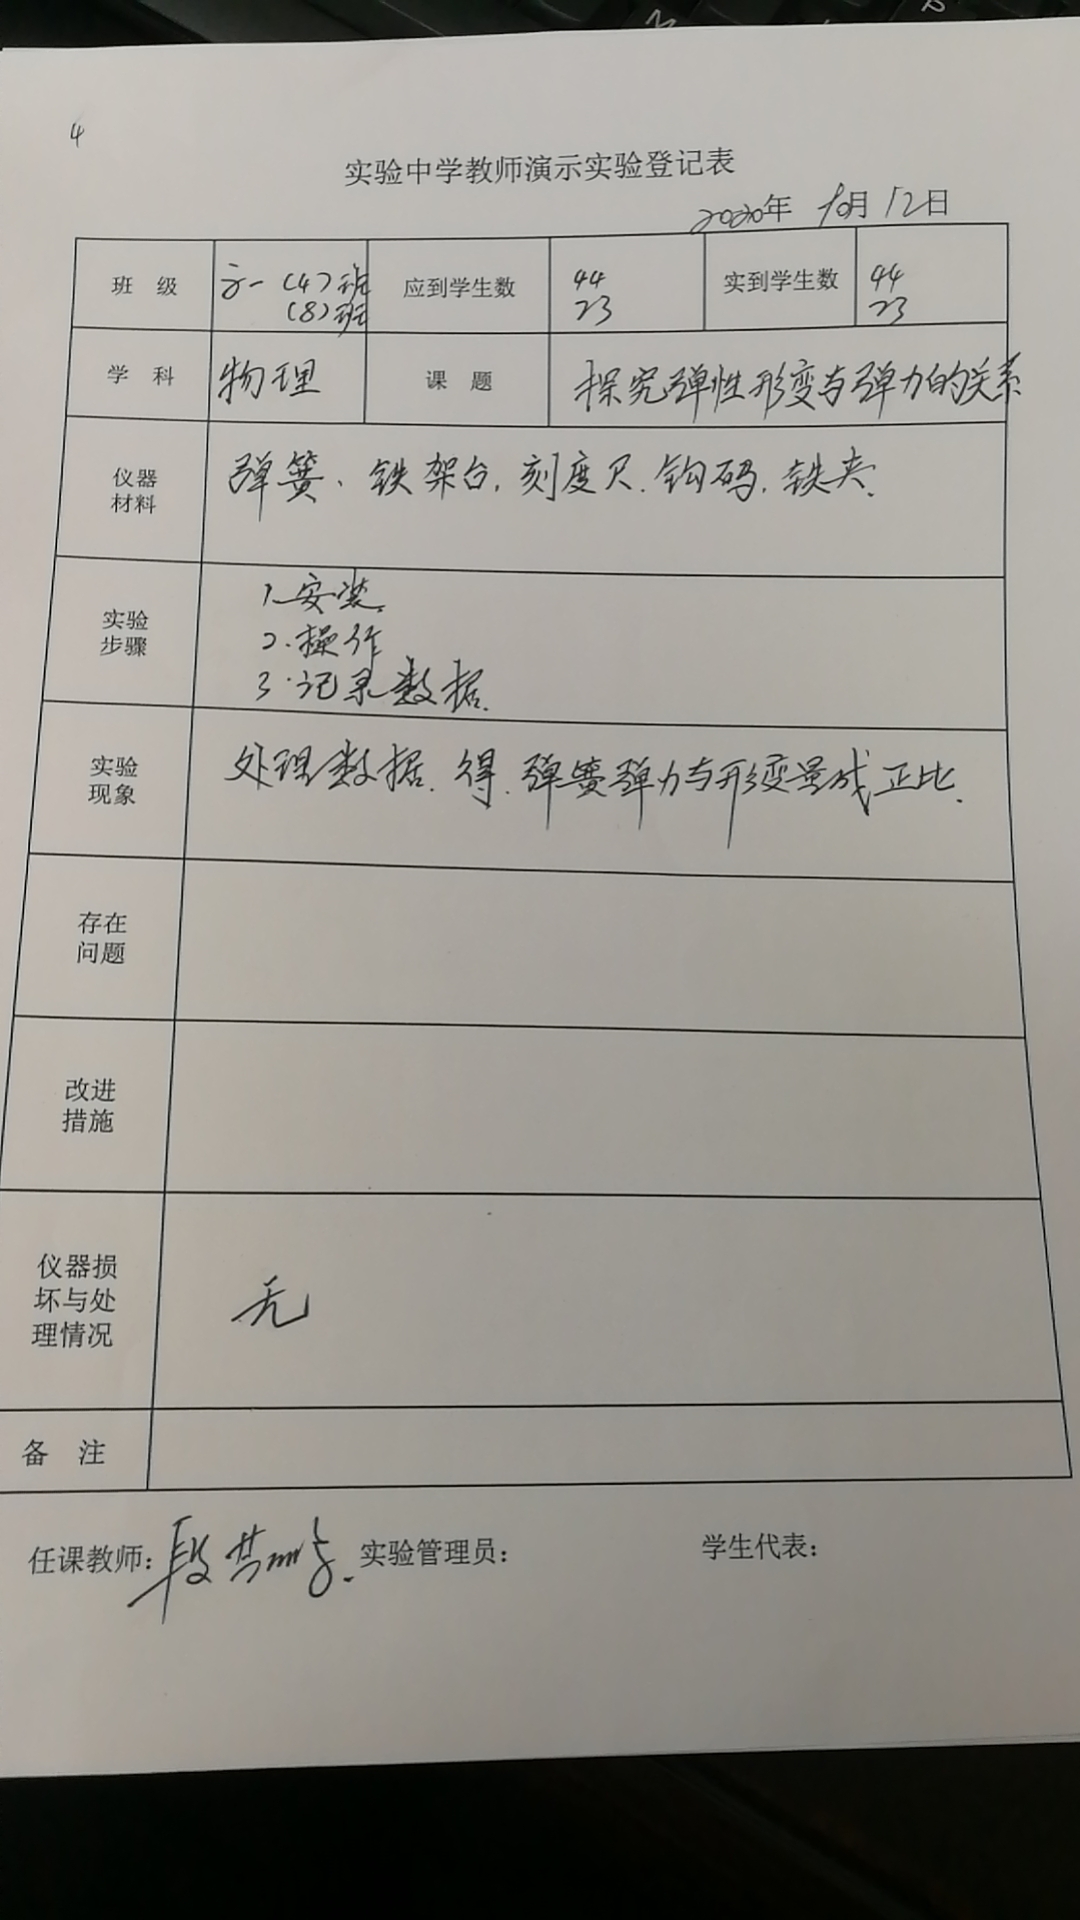 4
实验中学教师演示实验登记表
2020年 10月 12日
班 级 高一 (4)班 应到学生数 44 实到学生数 44
(8)班 23 23
学 科 物理 课 题 探究弹性形变与弹力的关系
仪器
材料
弹簧、铁架台,刻度尺.钩码.铁夹.
实验
步骤
1.安装.
2.操作
3.记录数据.
实验
现象
处理数据.得.弹簧弹力与形变量成正比.
存在
问题
改进
措施
仪器损
坏与处
理情况
无
备 注
任课教师: 段 实验管理员: 学生代表: